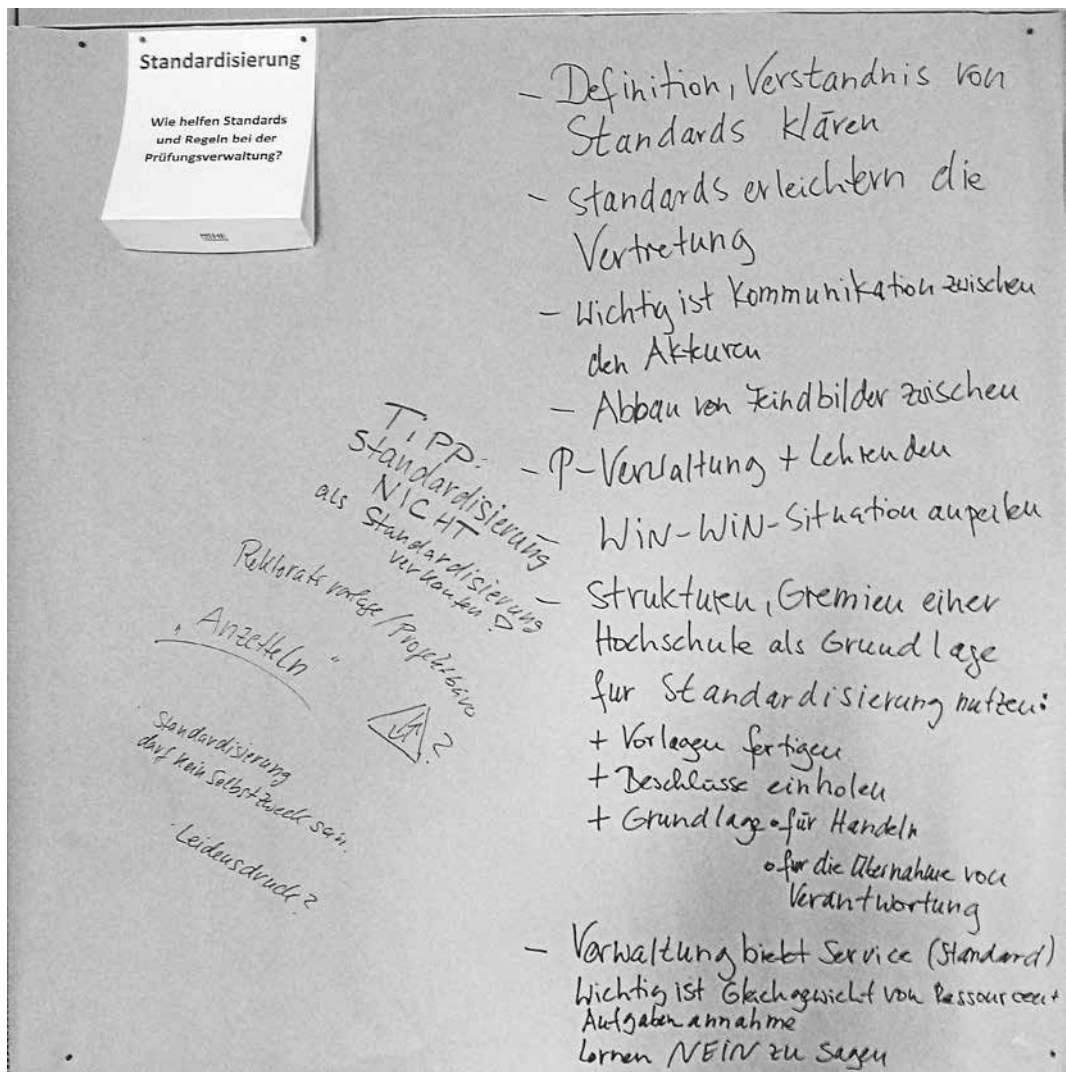 Standardisierung
Wie helfen Standards
und Regeln bei der
Prüfungsverwaltung?
- Definition, Verständnis von
Standards klären
- Standards erleichtern die
Vertretung
- Wichtig ist Kommunikation zwischen
den Akteuren
- Abbau von Feindbilder zwischen
- P-Verwaltung + Lehrenden
WiN-WiN-Situation anpeilen
- Strukturen, Gremien einer
Hochschule als Grundlage
für Standardisierung nutzen:
+ Vorlagen fertigen
+ Beschlüsse einholen
+ Grundlage • für Handeln
• für die Übernahme von
Verantwortung
- Verwaltung bietet Service (Standard)
Wichtig ist Gleichgewicht von Ressourcen +
Aufgabenannahme
Lernen NEIN zu sagen
TiPP:
Standardisierung
NICHT
als Standardisierung
verkaufen!
Rektoratsvorlage/Projektbüro
"Anzetteln"
?
Standardisierung
darf kein Selbstzweck sein.
Leidensdruck?